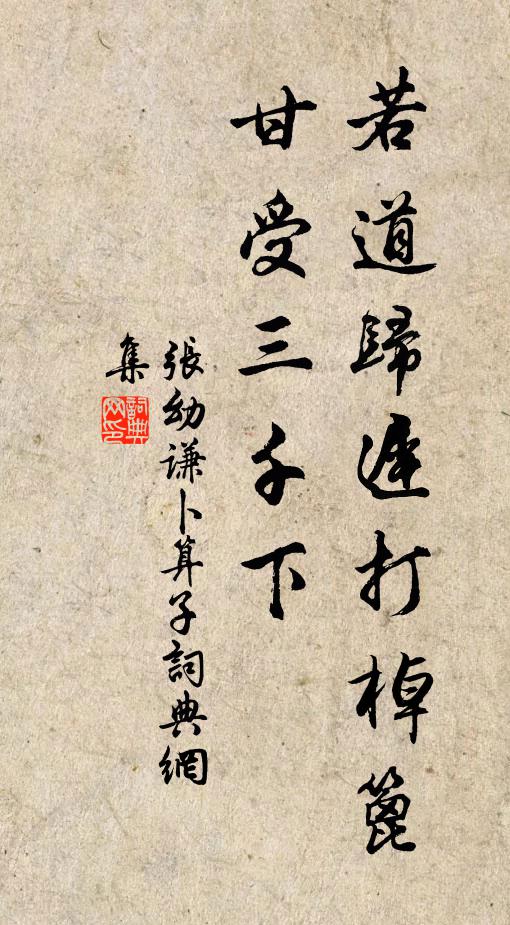 若道歸遲打棹篦
甘受三千下
張幼謙卜算子詞典網
集
詞典
网印